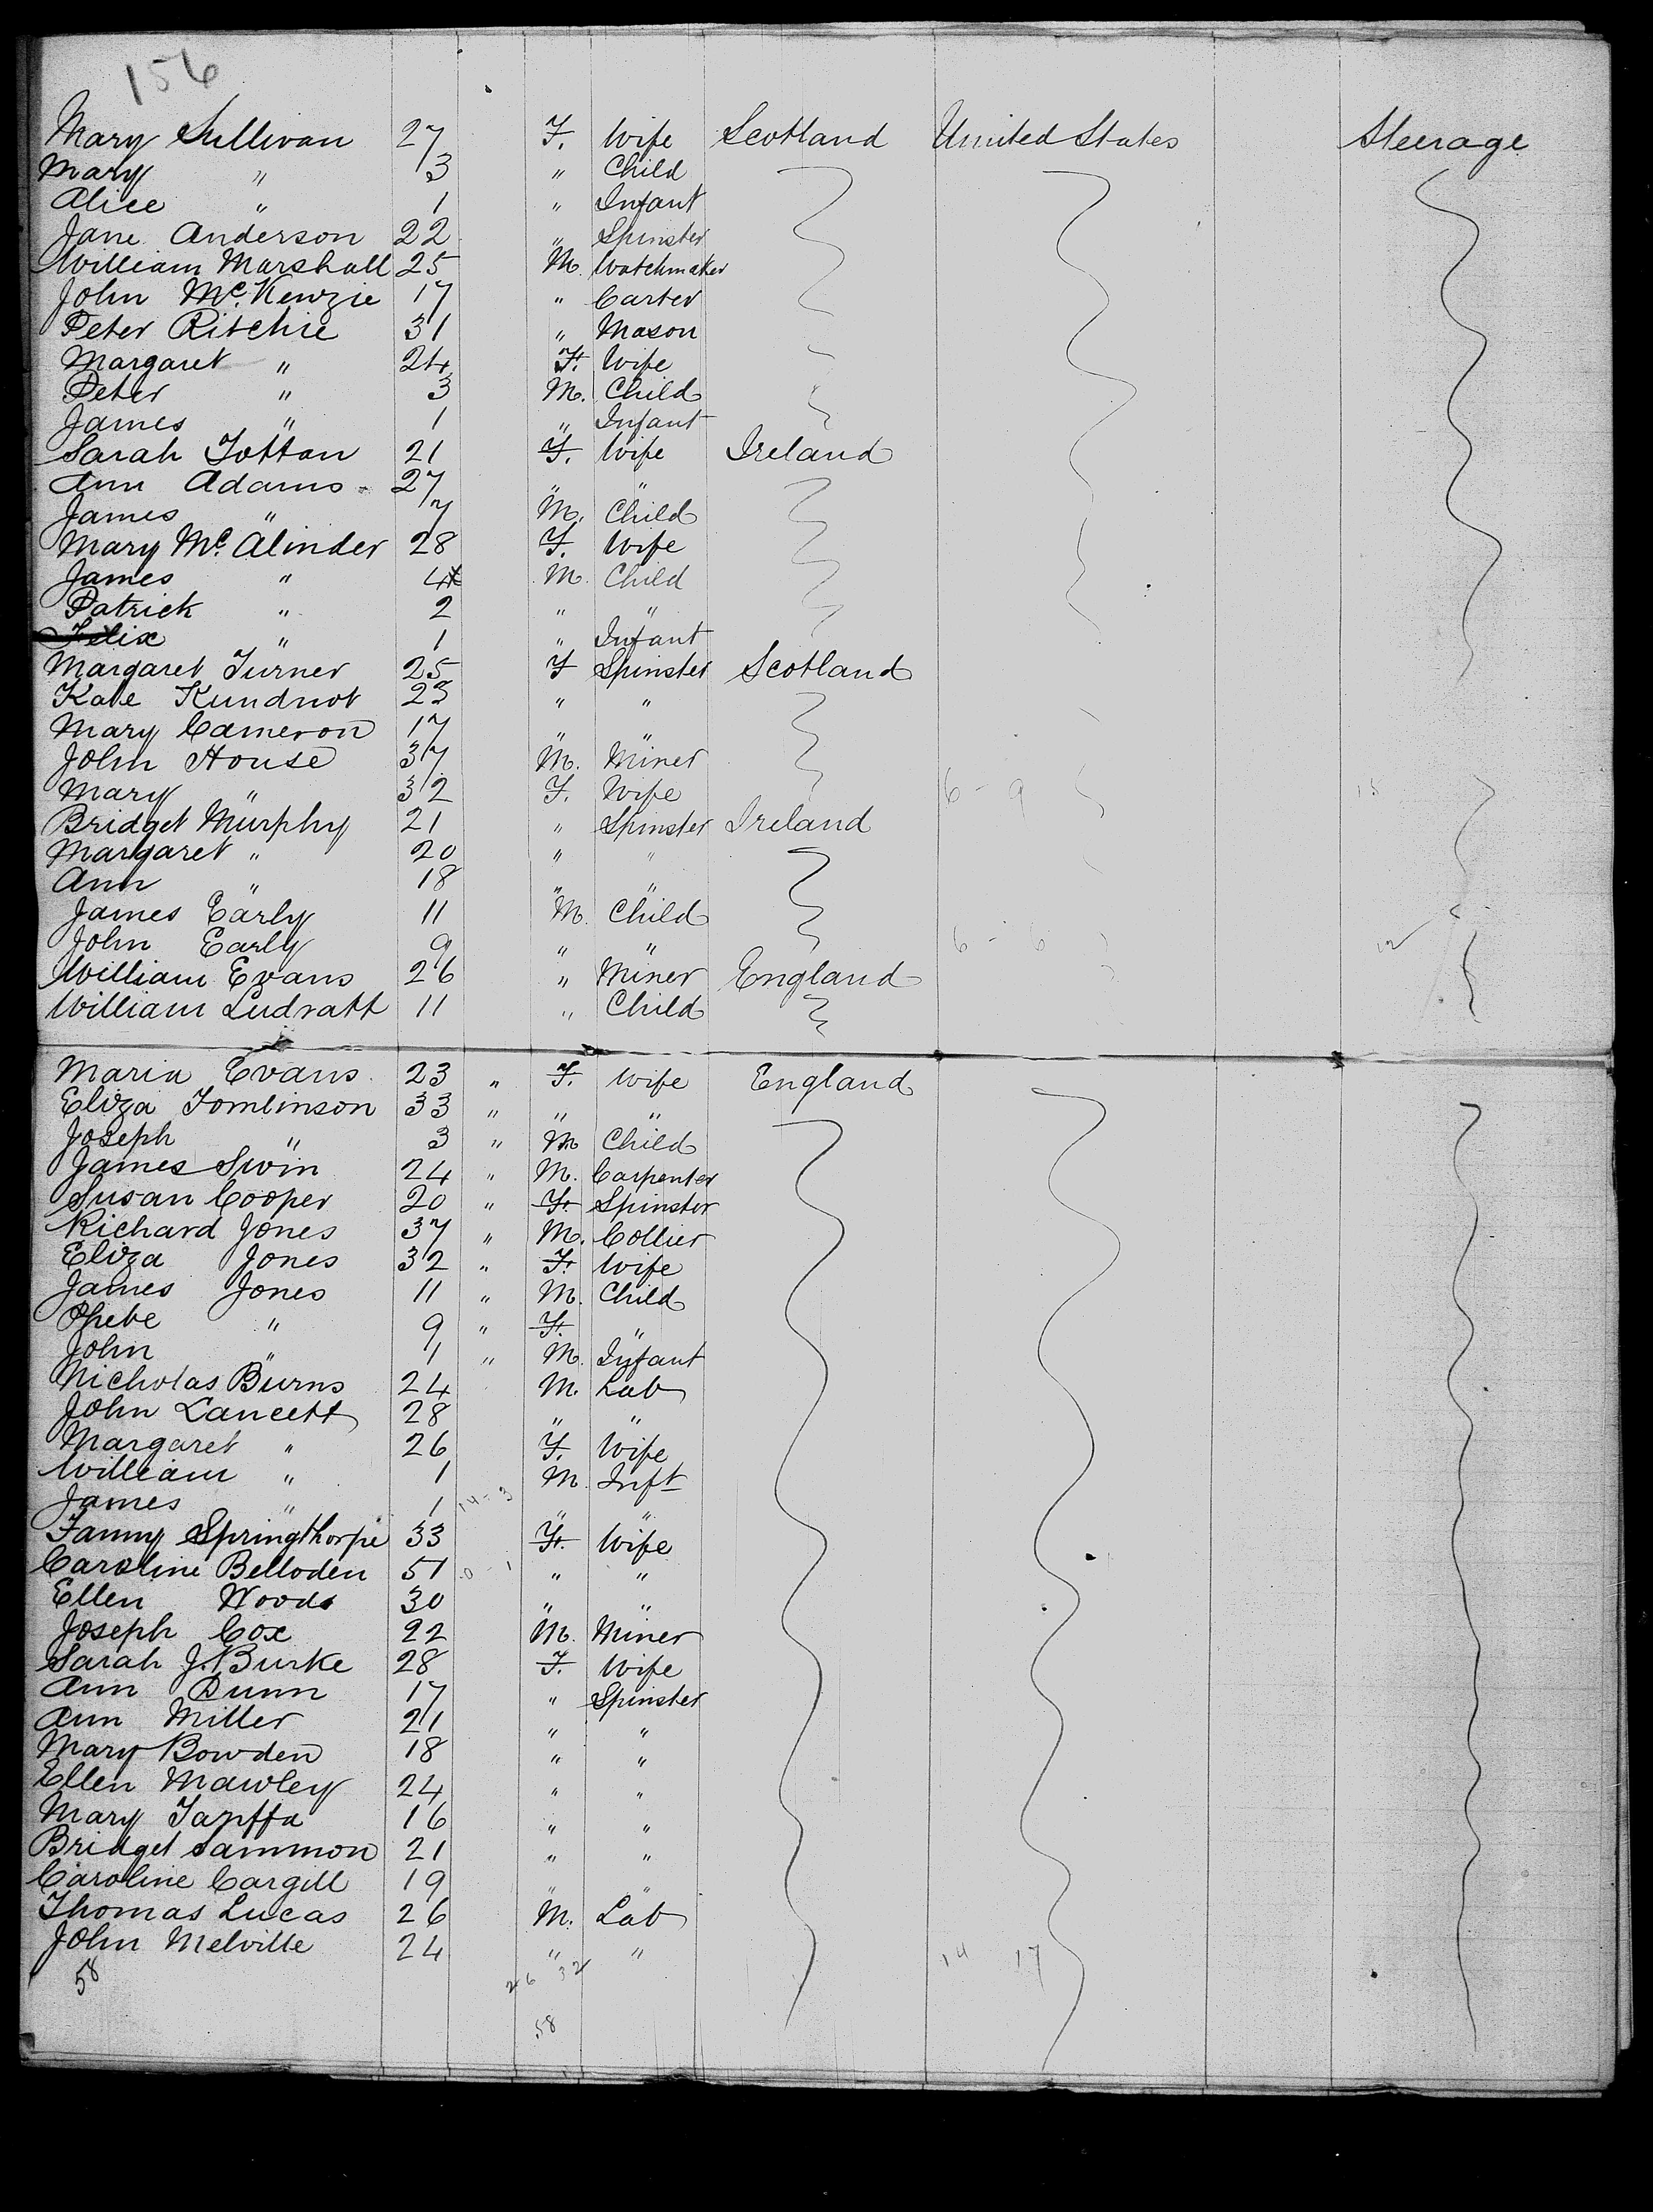 156
Mary Sullivan 27 F. Wife Scotland United States Steerage
Mary " 3 " Child
Alice " 1 " Infant
Jane Anderson 22 " Spinster
William Marshall 25 M. Watchmaker
John Mc. Kenzie 17 " Carter
Peter Ritchie 31 " Mason
Margaret " 24 F. Wife
Peter " 3 M. Child
James " 1 " Infant
Sarah Totton 21 F. Wife Ireland
Ann Adams 27 " "
James " 7 M. Child
Mary Mc. Alinder 28 F. Wife
James " 4 M. Child
Patrick " 2 " "
Felix " 1 " Infant
Margaret Turner 25 F Spinster Scotland
Kate Kundnot 23 " "
Mary Cameron 17 " "
John House 37 M. Miner
Mary " 32 F. Wife 6 - 9 18
Bridget Murphy 21 " Spinster Ireland
Margaret " 20 " "
Ann " 18 " "
James Early 11 M. Child
John Early 9 " " 6 - 6 12
William Evans 26 " Miner England
William Ludratt 11 " Child
Maria Evans 23 " F. Wife England
Eliza Tomlinson 33 " " "
Joseph " 3 " M Child
James Swin 24 " M. Carpenter
Susan Cooper 20 " F. Spinster
Richard Jones 37 " M. Collier
Eliza Jones 32 " F. Wife
James Jones 11 " M. Child
Phebe " 9 " F. "
John " 1 " M. Infant
Nicholas Burns 24 M. Lab
John Lancett 28 " "
Margaret " 26 F. Wife
William " 1 M. Inft
James " 1 14 - 3 " "
Fanny Springthorpe 33 F. Wife
Caroline Belloden 51 0 - 1 " "
Ellen Woods 30 " "
Joseph Cox 22 M. Miner
Sarah J. Burke 28 F. Wife
Ann Dunn 17 " Spinster
Ann Miller 21 " "
Mary Bowden 18 " "
Ellen Mawley 24 " "
Mary Tapffa 16 " "
Bridget Sammon 21 " "
Caroline Cargill 19 " "
Thomas Lucas 26 M. Lab
John Melville 24 " " 14 17
58 26 32
58